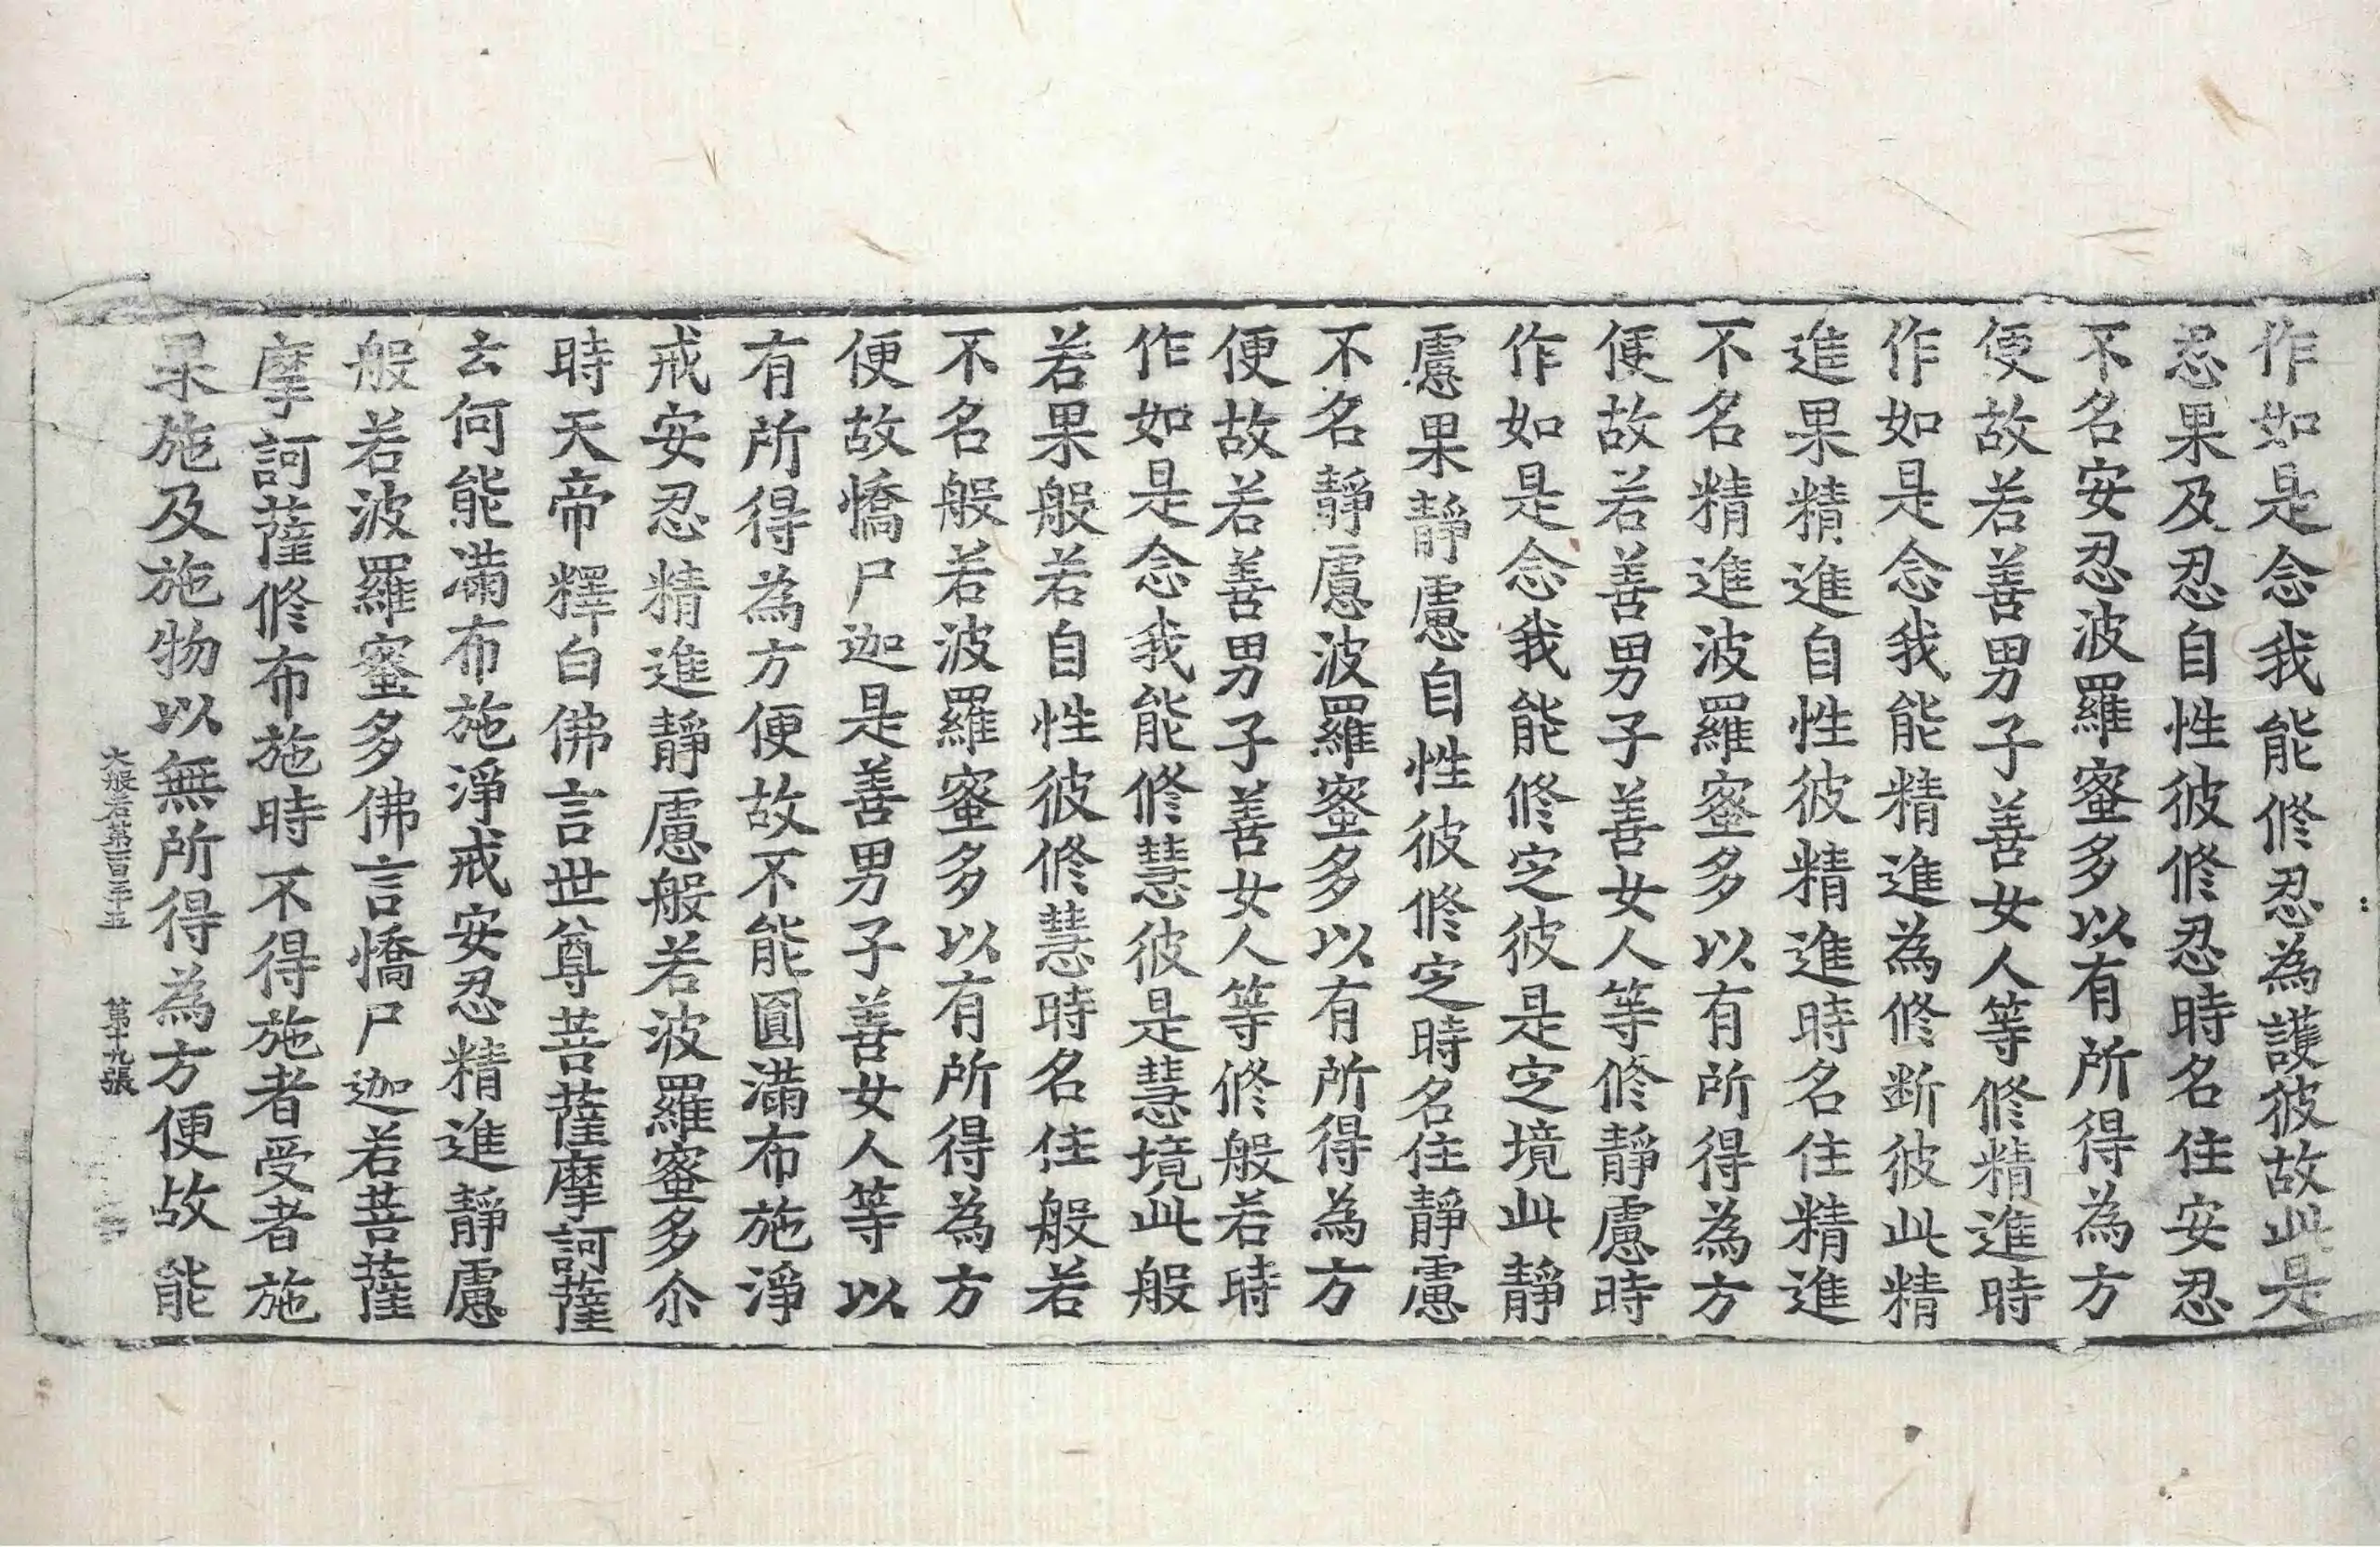 作如是念我能修忍為護彼故此是
忍果及忍自性彼修忍時名住安忍
不名安忍波羅蜜多以有所得為方
便故若善男子善女人等修精進時
作如是念我能精進為修断彼此精
進果精進自性彼精進時名住精進
不名精進波羅蜜多以有所得為方
便故若善男子善女人等修靜慮時
作如是念我能修㝎彼是㝎境此靜
慮果靜慮自性彼修㝎時名住靜慮
不名靜慮波羅蜜多以有所得為方
便故若善男子善女人等修般若時
作如是念我能修慧彼是慧境此般
若果般若自性彼修慧時名住般若
不名般若波羅蜜多以有所得為方
便故憍尸迦是善男子善女人等以
有所得為方便故不能圓滿布施淨
戒安忍精進靜慮般若波羅蜜多尒
時天帝釋白佛言世尊菩薩摩訶薩
云何能滿布施淨戒安忍精進靜慮
般若波羅蜜多佛言憍尸迦若菩薩
摩訶薩修布施時不得施者受者施
果施及施物以無所得為方便故能
大般若第一百三十五 第十九張